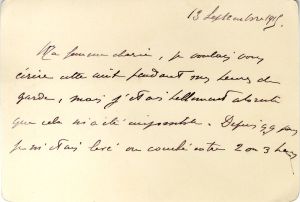 13 Septembre 1915.
Ma femme chérie, je voulais vous
écrire cette nuit pendant mes heures de
garde, mais j'étais tellement
que cela m'a été impossible. Depuis
je m'étais levé ou couché entre 2 ou 3 heures